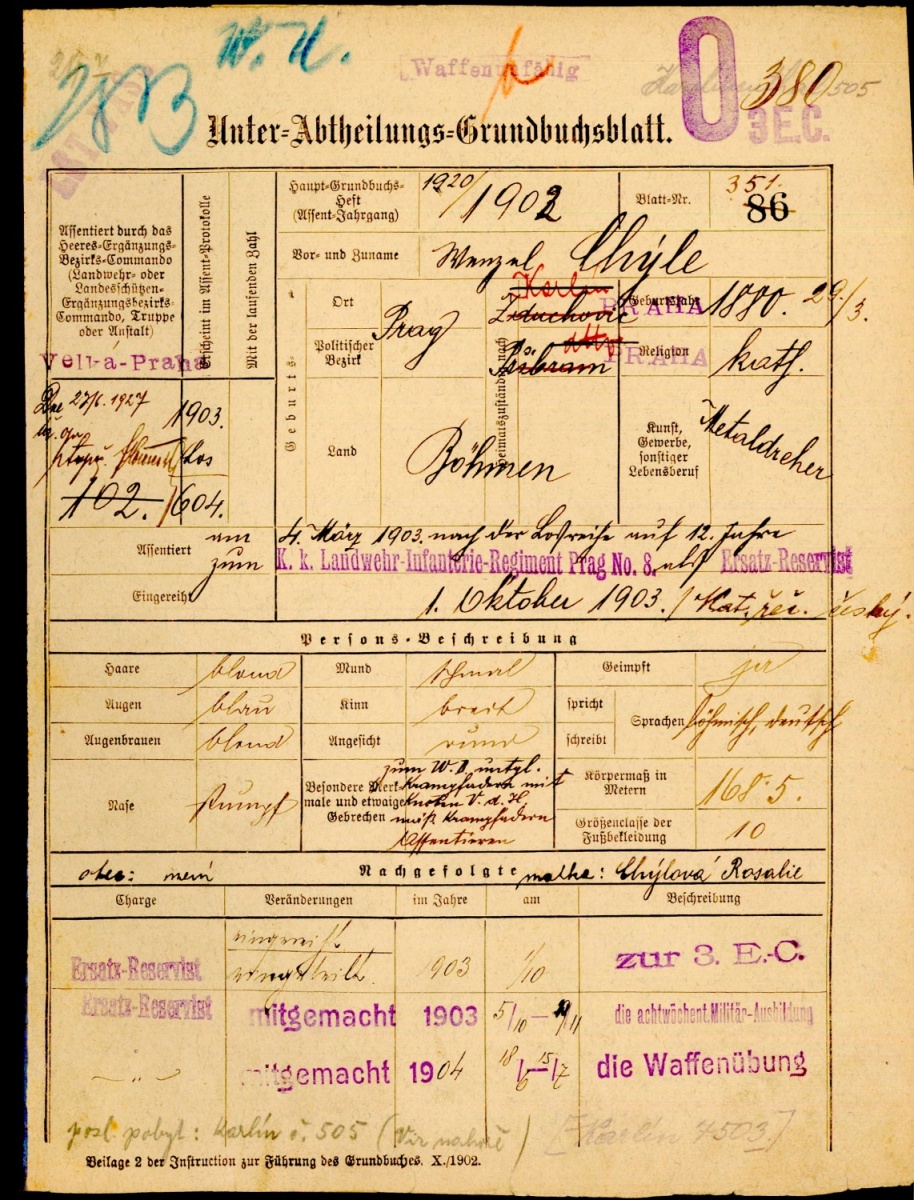 W. U.
Waffenunfähig
505
0
380
3 E.C.
Unter-Abtheilungs-Grundbuchsblatt.
Assentiert durch das
Heeres-Ergänzungs-
Bezirks-Commando
(Landwehr- oder
Landesschützen-
Ergänzungsbezirks-
Commando, Truppe
oder Anstalt)
Velká-Praha
Erscheint im Assent-Protokolle
Mit der laufenden Zahl
Dne 27/6. 1927
1903.
Los
102. / 604.
Haupt-Grundbuchs-
Heft
(Assent-Jahrgang)
1920/
1902
Blatt-Nr.
351.
86
Vor- und Zuname
Wenzel Chýle
Geburts-
Ort
Politischer
Bezirk
Prag
Land
Böhmen
Heimatszuständig nach
Karlín
Zduchovic
PRAHA
dtto
Přibram
PRAHA
Geburtsjahr
1880. 29./3.
Religion
kath.
Kunst,
Gewerbe,
sonstiger
Lebensberuf
Metaldreher
Assentiert
am
4. März 1903. nach der Losreihe auf 12. Jahre
zum
K. k. Landwehr-Infanterie-Regiment Prag No. 8. als Ersatz-Reservist
Eingereiht
1. Oktober 1903. / Mat. řeč. český.
Persons-Beschreibung
Haare blond Mund schmal Geimpft ja
Augen blau Kinn breit
spricht
schreibt
Sprachen böhmisch, deutsch
Augenbrauen blond Angesicht rund
Nase stumpf
Besondere Merk-
male und etwaige
Gebrechen
zum W. D. untgl.
Krampfadern mit
Knoten V. d. H.
Krampfadern
Assentieren
Körpermaß in
Metern
168·5.
Größenclasse der
Fußbekleidung
10
otec: Nachgefolgte matka: Chýlová Rosalie
Charge Veränderungen im Jahre am Beschreibung
eingereiht
Ersatz-Reservist 1903 1/10 zur 3. E.-C.
Ersatz-Reservist mitgemacht 1903 5/10 — /11 die achtwöchent. Militär-Ausbildung
— „ — mitgemacht 1904 18/6 — 15/7 die Waffenübung
posl. pobyt: Karlín č. 505 (Viz nahoře) [Karlín 503.]
Beilage 2 der Instruction zur Führung des Grundbuches. X./1902.